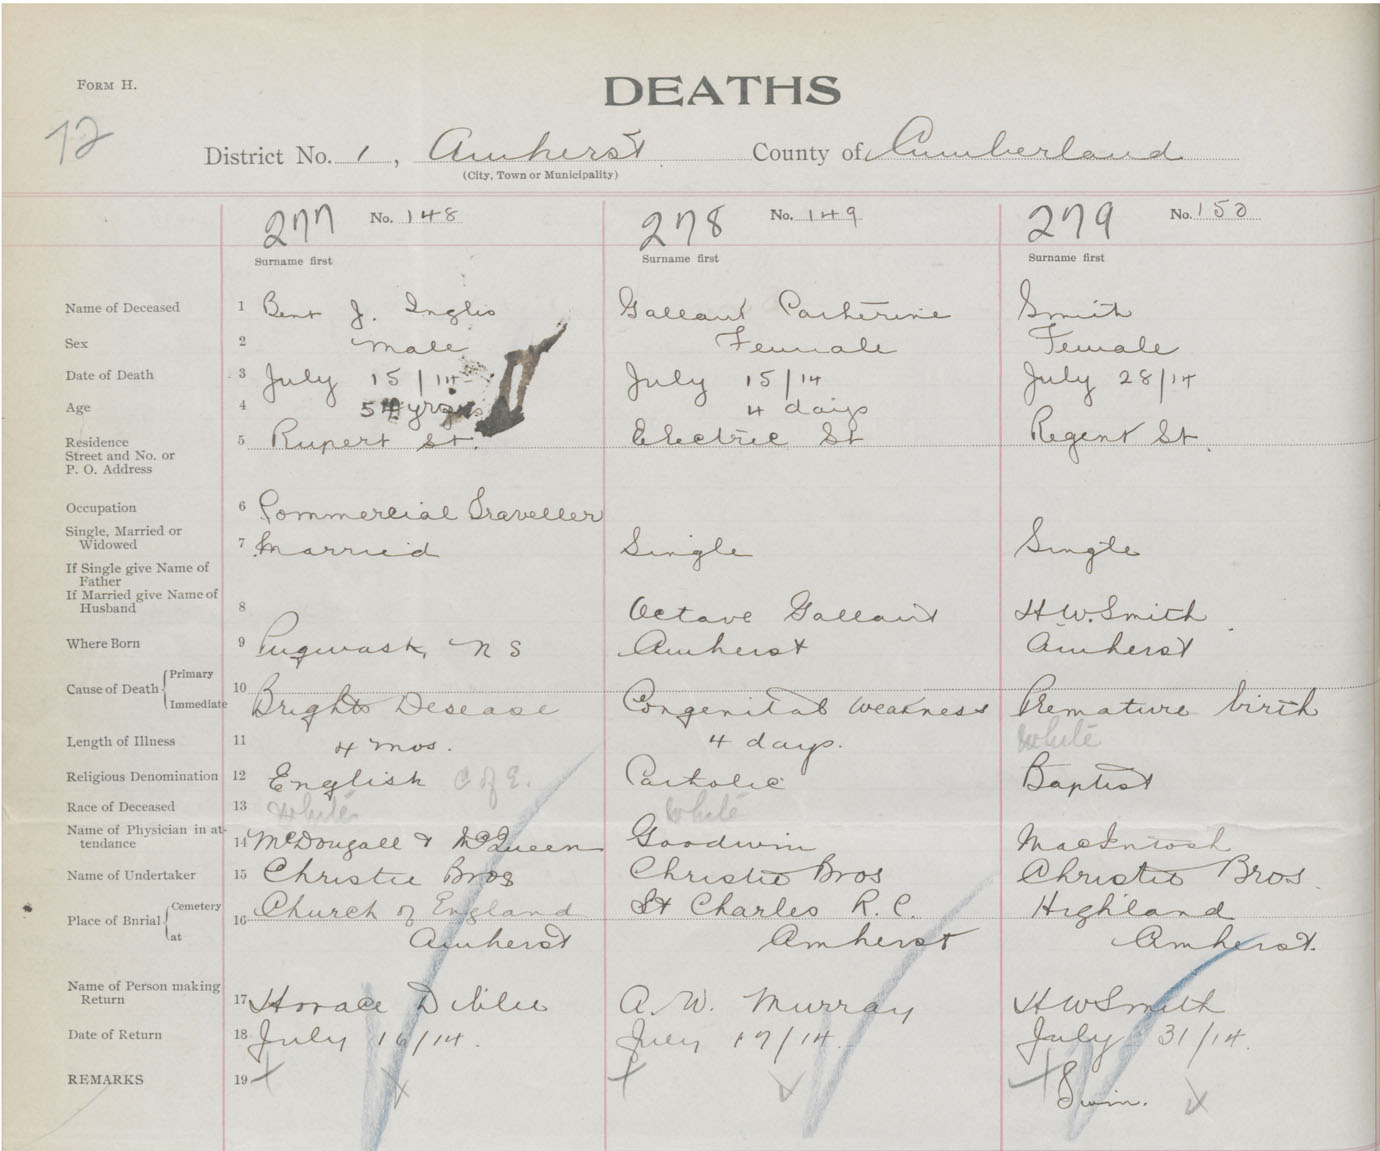 FORM H.
DEATHS
72
District No. 1, Amherst County of Cumberland
(City, Town or Municipality)
277 No. 148 278 No. 149 279 No. 150
Surname first Surname first Surname first
Name of Deceased 1 Bent J. Inglis Gallant Catherine Smith
Sex 2 Male Female Female
Date of Death 3 July 15/14 July 15/14 July 28/14
Age 4 54 yrs 4 days
Residence 5 Rupert St. Electric St Regent St.
Street and No. or
P. O. Address
Occupation 6 Commercial Traveller
Single, Married or
Widowed 7 Married Single Single
If Single give Name of
Father
If Married give Name of
Husband 8 Octave Gallant H W. Smith
Where Born 9 Pugwash, N S Amherst Amherst
Cause of Death { Primary
Immediate 10 Brights Desease Congenital weakness Premature birth
Length of Illness 11 4 mos. 4 days. White
Religious Denomination 12 English C of E. Catholic Baptist
Race of Deceased 13 White White
Name of Physician in at-
tendance 14 McDougall & McQueen Goodwin MacIntosh
Name of Undertaker 15 Christie Bros Christie Bros Christie Bros.
Place of Burial { Cemetery 16 Church of England St Charles R. C. Highland
at Amherst Amherst Amherst.
Name of Person making
Return 17 Horace Diblee A. W. Murray H W Smith
Date of Return 18 July 16/14. July 17/14. July 31/14.
REMARKS 19 Twin.